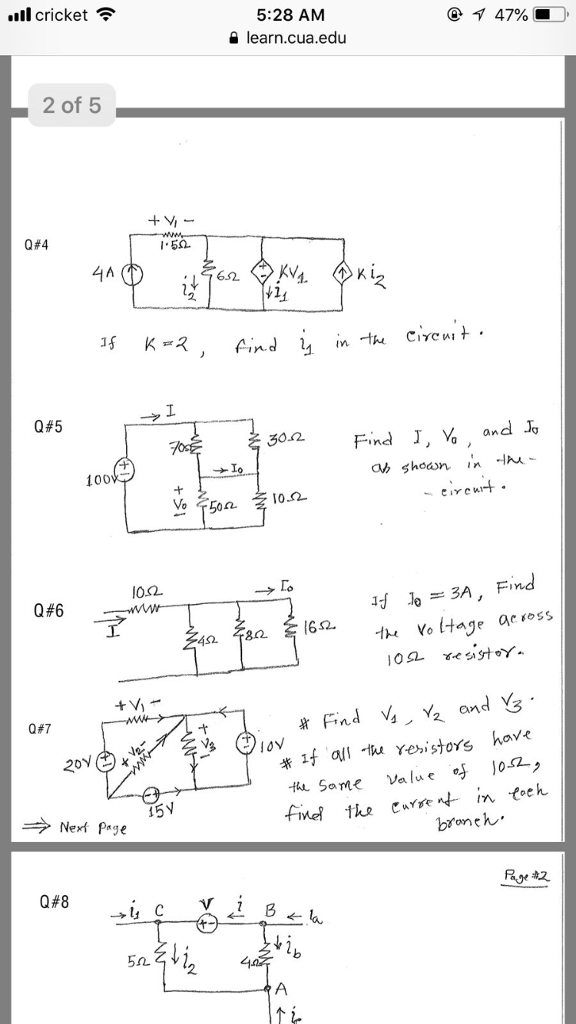 cricket 5:28 AM 47%
learn.cua.edu
2 of 5
Q#4
+ V₁ -
1.5Ω
4A
i₂
6Ω
KV₁
i₁
K i₂
If K = 2, find i₁ in the circuit.
Q#5
I
70Ω
30Ω
100V
I₀
+
V₀
-
50Ω
10Ω
Find I, V₀, and I₀
as shown in the-
- circuit.
Q#6
10Ω
I
I₀
4Ω
8Ω
16Ω
If I₀ = 3A, Find
the Voltage across
10Ω resistor.
Q#7
+ V₁ -
20V
+ V₂ -
+
V₃
-
10V
15V
# Find V₁, V₂ and V₃.
# If all the resistors have
the same value of 10Ω,
find the current in each
branch.
⇒ Next Page
Page #2
Q#8
i₁ C
V
+ -
i
B
ia
5Ω
i₂
4Ω
ib
A